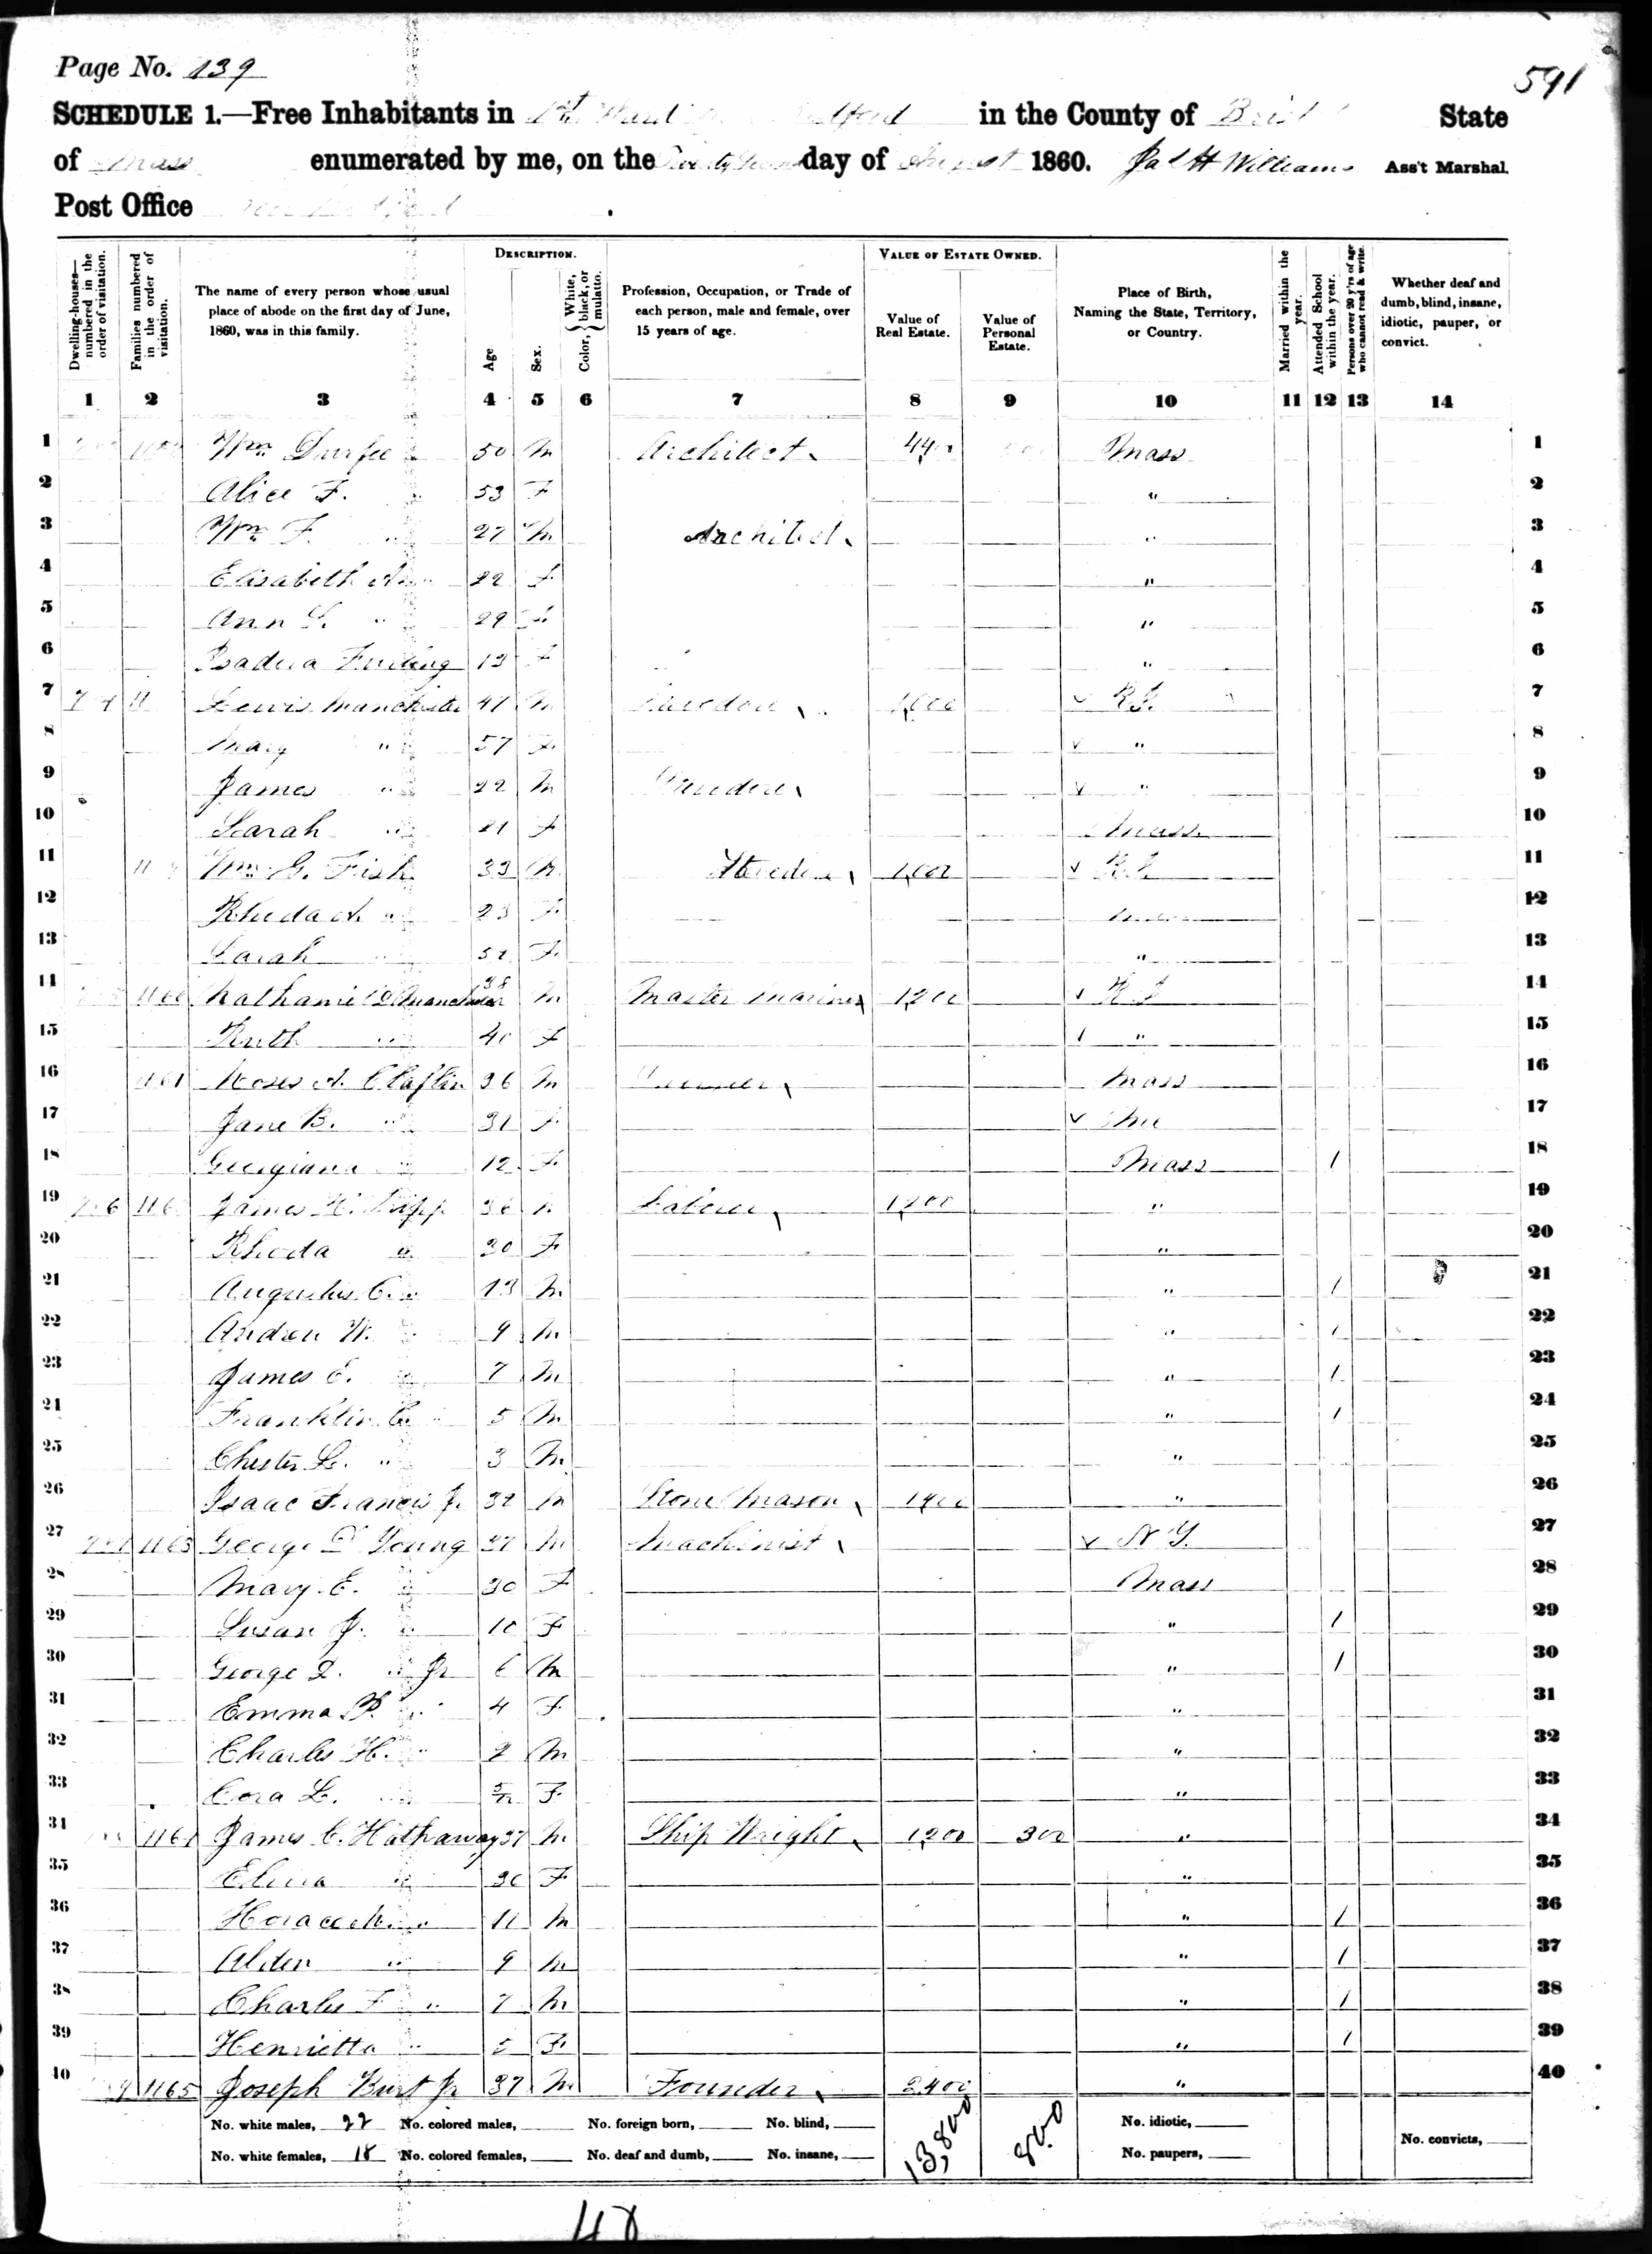 Page No. 139
591
SCHEDULE 1.—Free Inhabitants in 1st Ward New Bedford in the County of Bristol State
of Mass enumerated by me, on the day of August 1860. Jas H Williams Ass't Marshal.
Post Office New Bedford
Dwelling-houses—numbered in the order of visitation.
Families numbered in the order of visitation.
The name of every person whose usual place of abode on the first day of June, 1860, was in this family.
DESCRIPTION.
Age
Sex.
Color, { White, black, or mulatto.
Profession, Occupation, or Trade of each person, male and female, over 15 years of age.
VALUE OF ESTATE OWNED.
Value of Real Estate.
Value of Personal Estate.
Place of Birth, Naming the State, Territory, or Country.
Married within the year.
Attended School within the year.
Persons over 20 y'rs of age who cannot read & write.
Whether deaf and dumb, blind, insane, idiotic, pauper, or convict.
1 2 3 4 5 6 7 8 9 10 11 12 13 14
1 Wm Durfee 50 M Architect 4400 Mass 1
2 Alice F. " 53 F " 2
3 Wm F. " 27 M Architect " 3
4 Elisabeth A. " 22 F " 4
5 Ann S. " 29 F " 5
6 Isadora 13 F " 6
7 Lewis Manchester 47 M 1,000 R.I. 7
8 Mary " 57 F " 8
9 James " 22 M " 9
10 Sarah " 21 F Mass 10
11 Wm G. Fish 33 M 1,000 R.I. 11
12 Rhuda A. " 23 F 12
13 Sarah " 52 F " 13
14 1160 Nathaniel D Manchester 38 M Master Mariner 1,200 R I 14
15 Ruth " 40 F " 15
16 1161 Moses A. Claflin 36 M Mass 16
17 Jane B. " 31 F 17
18 Georgiana " 12 F Mass 1 18
19 James H. Tripp 36 M Laborer 1,200 " 19
20 Rhoda " 30 F " 20
21 Augustus C. " 13 M " 1 21
22 Andrew W. " 9 M " 1 22
23 James E. " 7 M " 1 23
24 Franklin C. " 5 M " 1 24
25 Chester L. " 3 M " 25
26 Isaac Francis Jr 32 M Stone Mason 1400 " 26
27 1163 George D Young 37 M Machinist N.Y. 27
28 Mary E. " 30 F Mass 28
29 Susan J. " 10 F " 1 29
30 George D. " Jr 6 M " 1 30
31 Emma P. " 4 F " 31
32 Charles H. " 2 M " 32
33 Cora L. " 5/12 F " 33
34 1164 James C. Hathaway 37 M Ship Wright 1,200 300 " 34
35 " 36 F " 35
36 Horace M. " 11 M " 1 36
37 Alden " 9 M " 1 37
38 Charles F " 7 M " 1 38
39 Henrietta " 5 F " 1 39
40 1165 Joseph Burt Jr 37 M Founder 2400 " 40
No. white males, 22 No. colored males, No. foreign born, No. blind, 13,800 800 No. idiotic,
No. white females, 18 No. colored females, No. deaf and dumb, No. insane, No. paupers, No. convicts,